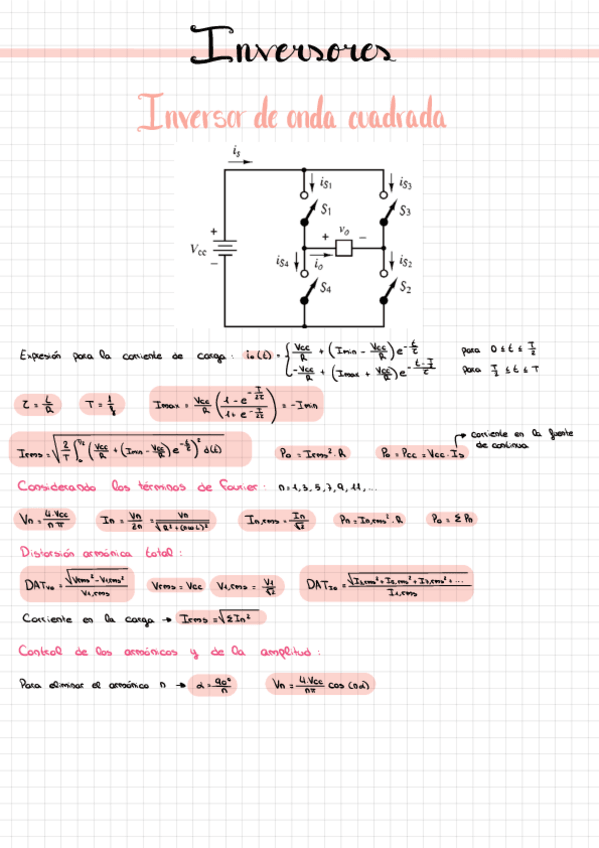 Inversores
Inversor de onda cuadrada
is
iS1 iS3
S1 S3
+ vo −
Vcc + −
iS4 io iS2
S4 S2
Expresión para la corriente de carga: io(t) = { Vcc/R + (Imin - Vcc/R) e^(-t/τ) para 0 ≤ t ≤ T/2
-Vcc/R + (Imax + Vcc/R) e^(-(t-T/2)/τ) para T/2 ≤ t ≤ T
τ = L/R T = 1/f Imax = Vcc/R ((1 - e^(-T/2τ))/(1 + e^(-T/2τ))) = -Imin
corriente en la fuente de continua
Irms = √(2/T ∫₀^(T/2) (Vcc/R + (Imin - Vcc/R) e^(-t/τ))² d(t)) Po = Irms² · R Po = Pcc = Vcc · Is
Considerando los términos de Fourier: n = 1, 3, 5, 7, 9, 11, ...
Vn = 4·Vcc/nπ In = Vn/Zn = Vn/√(R² + (nωL)²) In,rms = In/√2 Pn = In,rms² · R Po = Σ Pn
Distorsión armónica total:
DATvo = √(Vrms² - V1,rms²)/V1,rms Vrms = Vcc V1,rms = V1/√2 DATIo = √(I2,rms² + I2,rms² + I3,rms² + ...)/I1,rms
Corriente en la carga → Irms = √ΣIn²
Control de los armónicos y de la amplitud:
Para eliminar el armónico n → α = 90°/n Vn = 4·Vcc/nπ cos (nα)